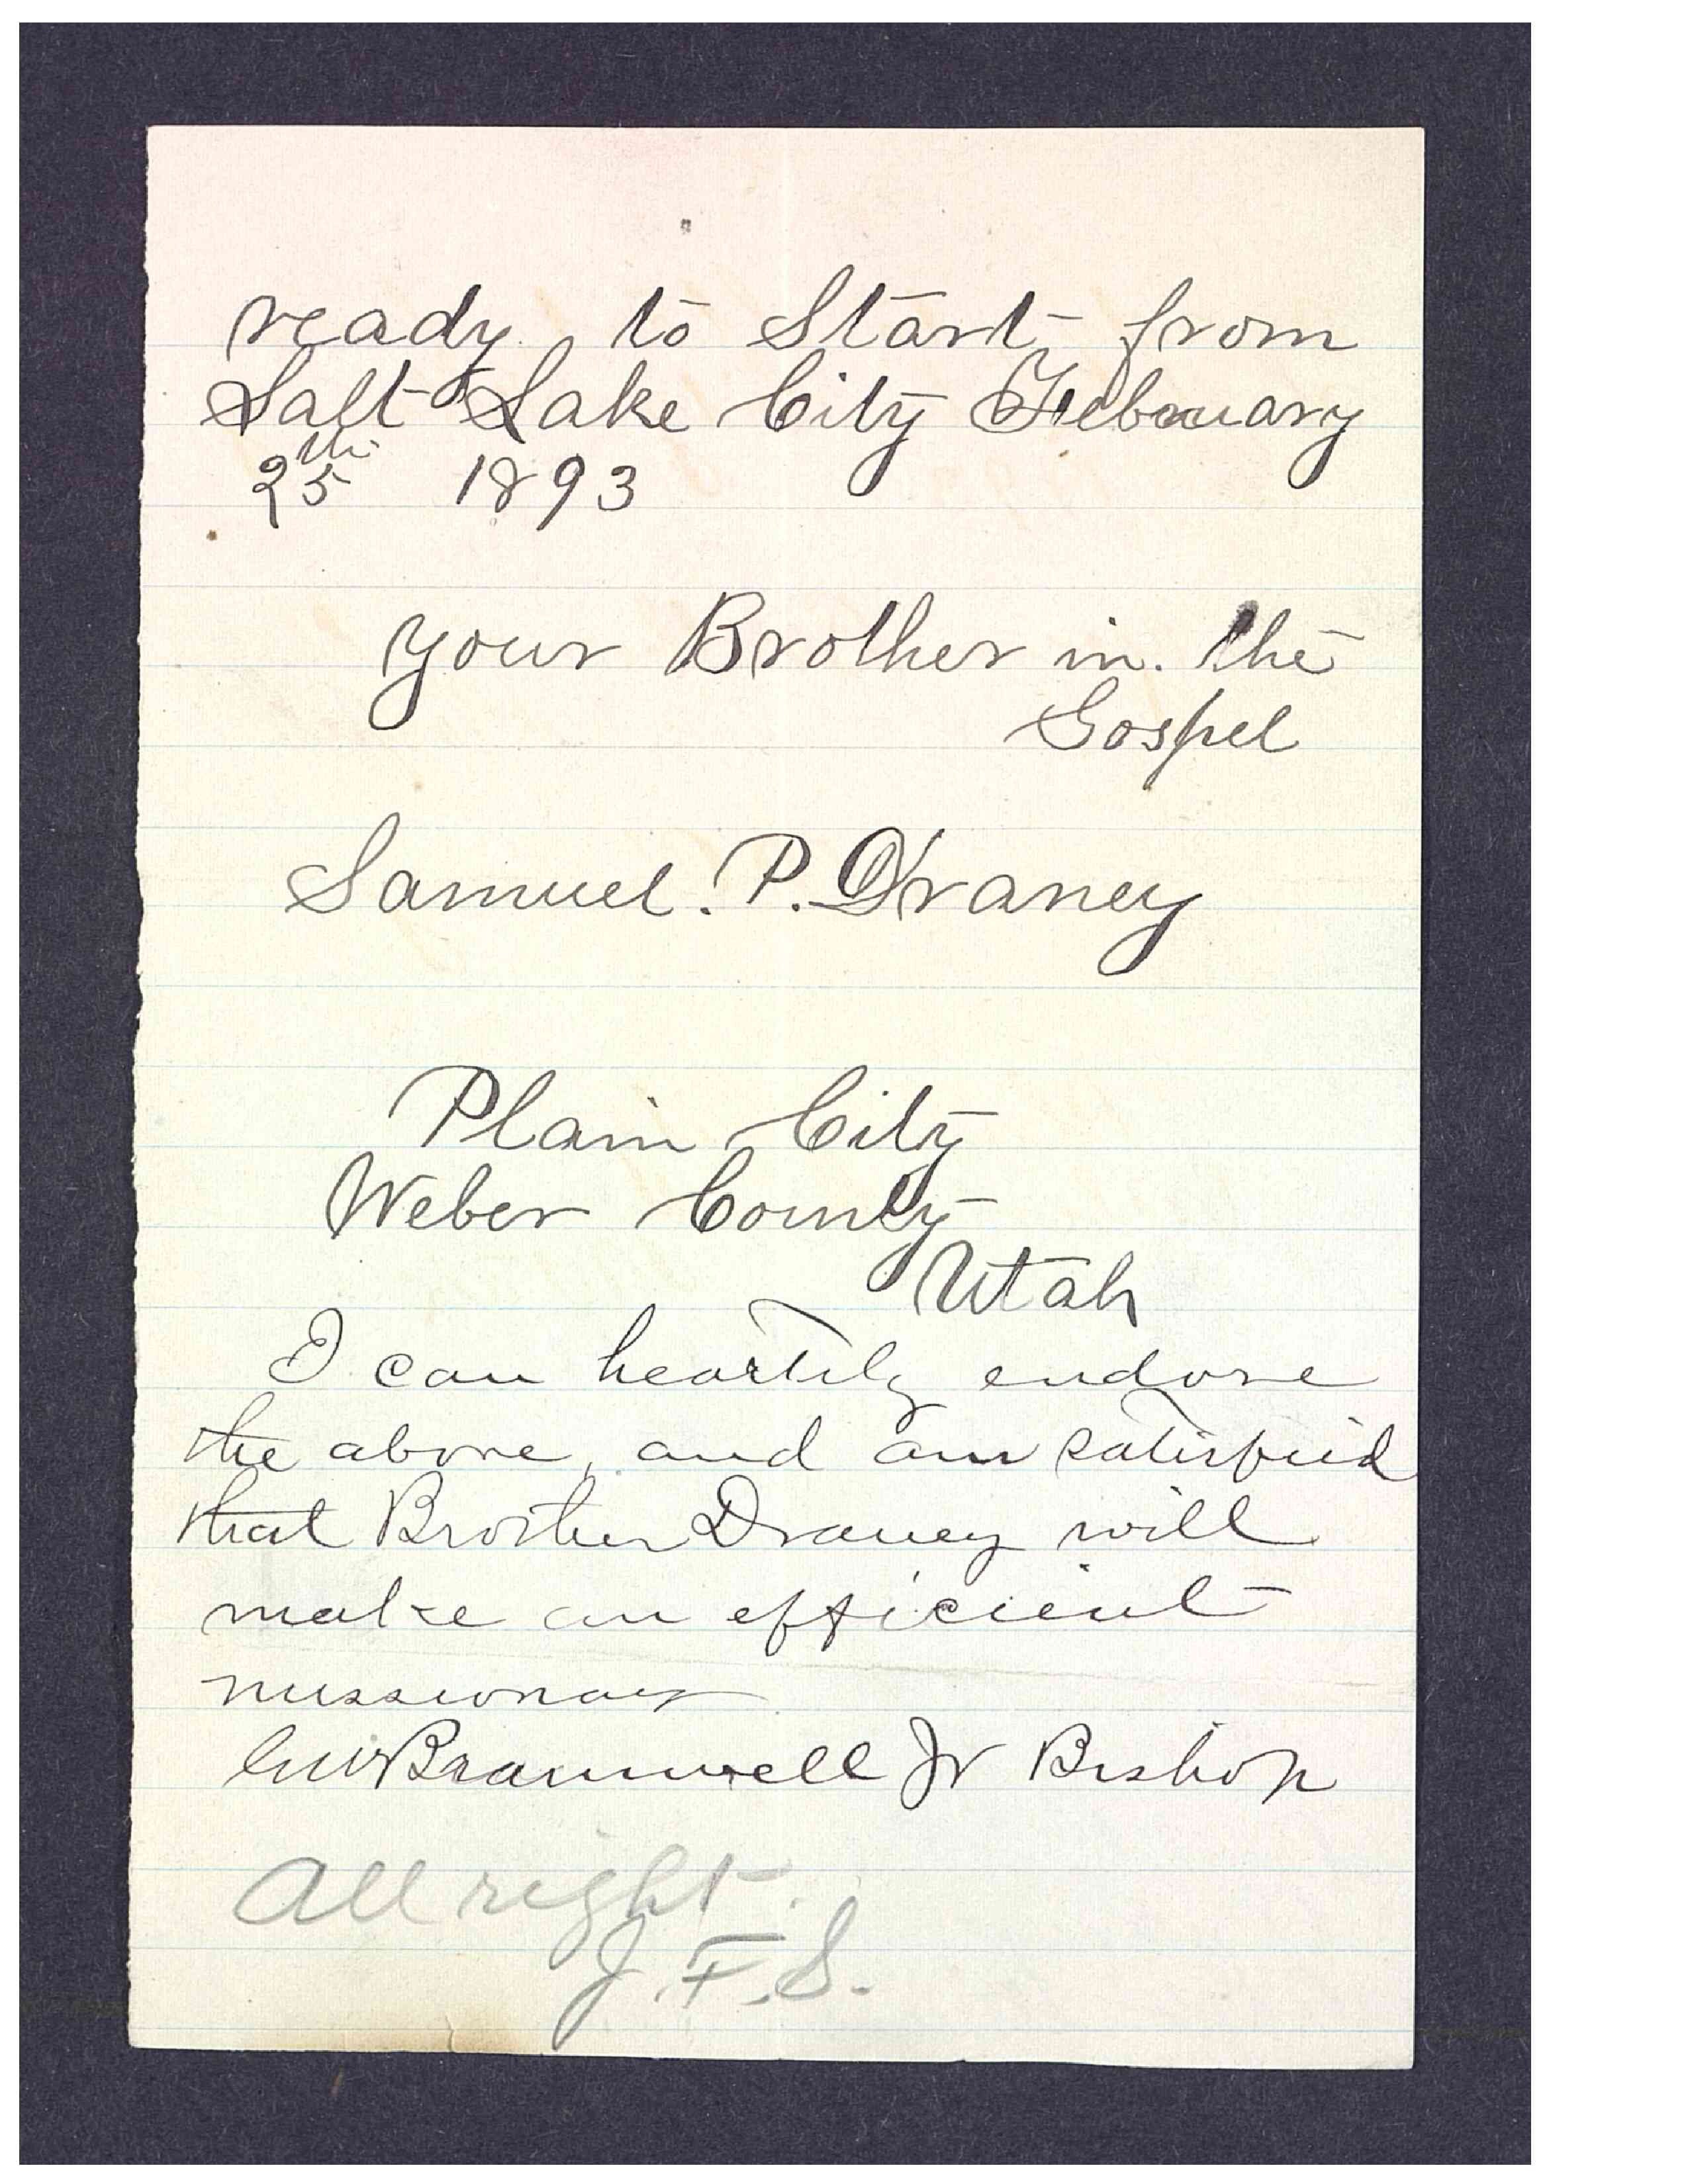 ready to Start from
Salt Lake City February
25th 1893
your Brother in. the
Gospel
Samuel. P. Draney
Plain City
Weber County
Utah
I can heartily endorse
the above, and am satisfied
that Brother Draney will
make an efficient
missionary
GW Bramwell Jr Bishop
All right.
J. F. S.